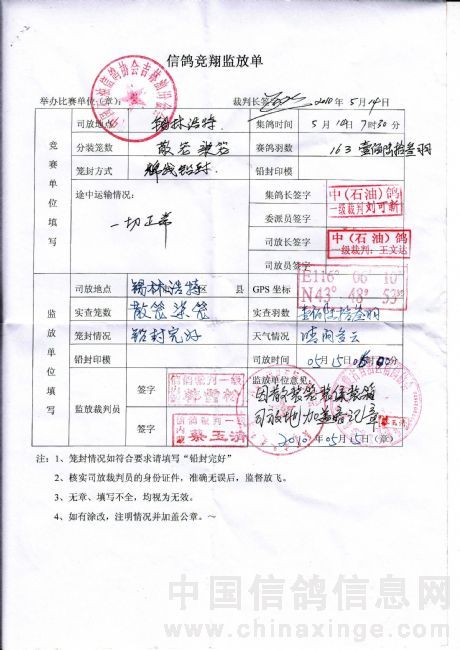 信鸽竞翔监放单
举办比赛单位(章): 裁判长签 2010年5月14日
竞赛单位填写
司放地点 锡林浩特 集鸽时间 5月14日7时30分
分装笼数 散笼 赛鸽羽数 163 壹佰陆拾叁羽
笼封方式 铅封 铅封印模
途中运输情况: 一切正常
集鸽长签字 中(石油)鸽
一级裁判刘可新
委派员签字
司放长签字 中(石油)鸽
一级裁判:王文达
司放员签字
监放单位填写
司放地点 锡林浩特 区 县 GPS 坐标 E116° 06' 10"
N43° 48' 53"
实查笼数 散笼 实查羽数 壹佰陆拾叁羽
笼封情况 铅封完好 天气情况 晴间多云
铅封印模 司放时间 05月15日 分
监放裁判员
签字 信鸽裁判一级
签字 信鸽裁判一级
蔡玉清
监放单位意见:
司放地加盖
2010年05月15日(章)
注:1、笼封情况如符合要求请填写“铅封完好”
2、核实司放裁判员的身份证件,准确无误后,监督放飞。
3、无章、填写不全,均视为无效。
4、如有涂改,注明情况并加盖公章。~
中国信鸽信息网
www.chinaxinge.com